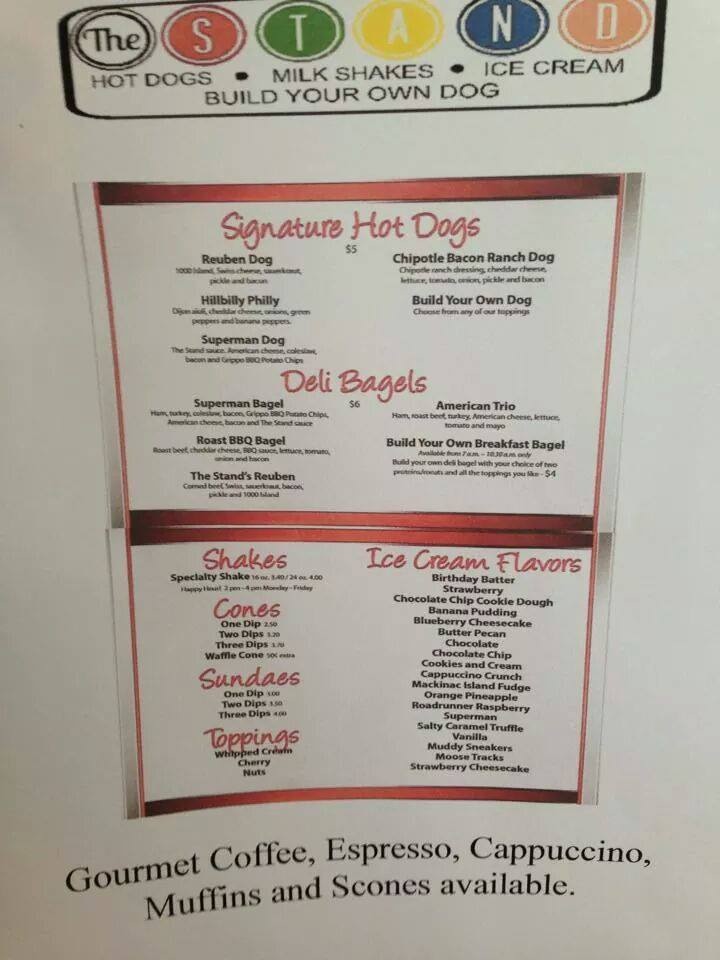 The STAND
HOT DOGS • MILK SHAKES • ICE CREAM
BUILD YOUR OWN DOG
Signature Hot Dogs
$5
Reuben Dog
1000 Island, Swiss cheese, sauerkraut,
pickle and bacon
Hillbilly Philly
Dijon aiuli, cheddar cheese, onions, green
peppers and banana peppers.
Superman Dog
The Stand sauce. American cheese, coleslaw,
bacon and Grippo BBQ Potato Chips
Chipotle Bacon Ranch Dog
Chipotle ranch dressing, cheddar cheese,
lettuce, tomato, onion, pickle and bacon
Build Your Own Dog
Choose from any of our toppings
Deli Bagels
$6
Superman Bagel
Ham, turkey, coleslaw, bacon, Grippo BBQ Potato Chips,
American cheese, bacon and The Stand sauce
Roast BBQ Bagel
Roast beef, cheddar cheese, BBQ sauce, lettuce, tomato,
onion and bacon
The Stand's Reuben
Corned beef, Swiss, sauerkraut, bacon,
pickle and 1000 Island
American Trio
Ham, roast beef, turkey, American cheese, lettuce,
tomato and mayo
Build Your Own Breakfast Bagel
Available from 7 a.m. – 10:30 a.m. only
Build your own deli bagel with your choice of two
proteins/meats and all the toppings you like - $4
Shakes
Specialty Shake 16 oz. 3.40 / 24 oz. 4.00
Happy Hour! 2 pm - 4 pm Monday - Friday
Cones
One Dip 2.50
Two Dips 3.20
Three Dips 3.70
Waffle Cone 50¢ extra
Sundaes
One Dip 3.00
Two Dips 3.50
Three Dips 4.00
Toppings
Whipped Cream
Cherry
Nuts
Ice Cream Flavors
Birthday Batter
Strawberry
Chocolate Chip Cookie Dough
Banana Pudding
Blueberry Cheesecake
Butter Pecan
Chocolate
Chocolate Chip
Cookies and Cream
Cappuccino Crunch
Mackinac Island Fudge
Orange Pineapple
Roadrunner Raspberry
Superman
Salty Caramel Truffle
Vanilla
Muddy Sneakers
Moose Tracks
Strawberry Cheesecake
Gourmet Coffee, Espresso, Cappuccino,
Muffins and Scones available.